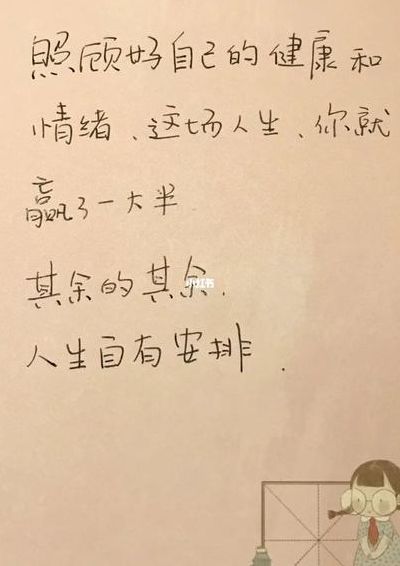 照顾好自己的健康和
情绪、这场人生、你就
赢了一大半
其余的其余、
小红书
人生自有安排.